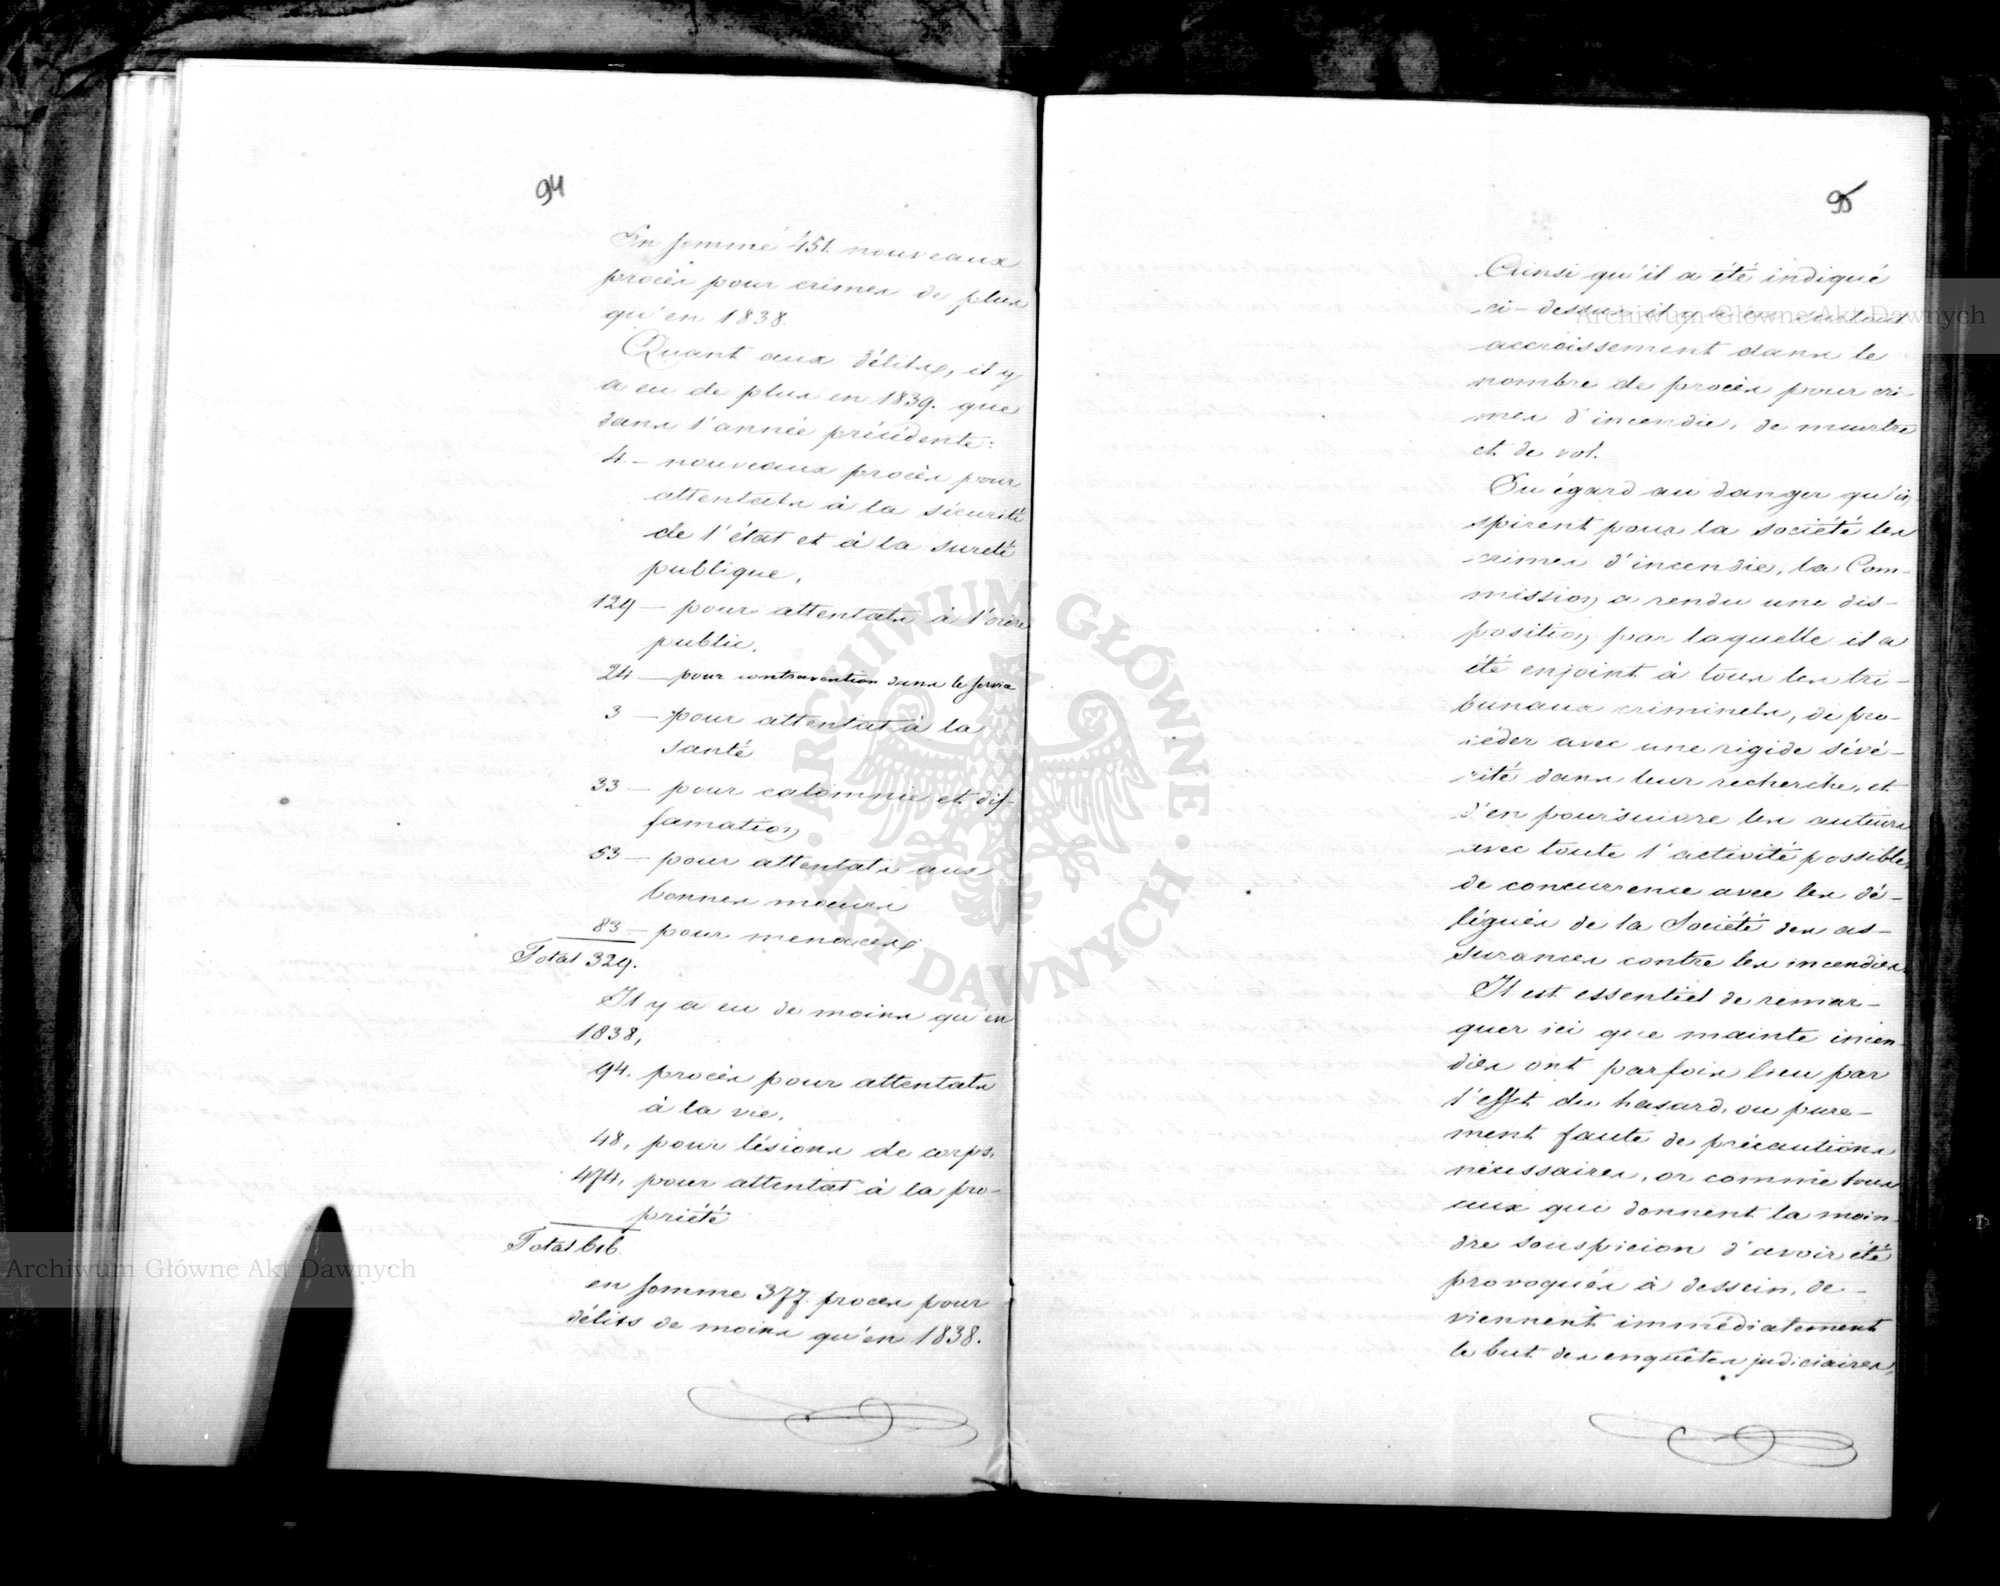 94
En somme 451. nouveaux
procès pour crimes de plus
qu'en 1838.
Quant aux délits, il y
a eu de plus en 1839. que
dans l'année précédente:
4. – nouveaux procès pour
attentats à la sécurité
de l'état et à la sureté
publique,
129 – pour attentats à l'ordre
public,
24 – pour contravention dans le service
3 – pour attentat à la
santé
33 – pour calomnie et dif-
famation
53 – pour attentats aux
bonnes moeurs
83 – pour menaces
Total 329.
Il y a eu de moins qu'en
1838,
94. procès pour attentats
à la vie,
48, pour lésions de corps,
474, pour attentat à la pro-
priété
Total 616.
en somme 377. procès pour
délits de moins qu'en 1838.
95
Ainsi qu'il a été indiqué
ci-dessus il y a eu surtout
accroissement dans le
nombre de procès pour cri-
mes d'incendie, de meurtre
et de vol.
Eu égard au danger qu'in-
spirent pour la société les
crimes d'incendie, la Com-
mission a rendu une dis-
position par laquelle il a
été enjoint à tous les tri-
bunaux criminels, de pro-
céder avec une rigide sévé-
rité dans leur recherche, et
d'en poursuivre les auteurs
avec toute l'activité possible,
de concurrence avec les dé-
légués de la Société des as-
surances contre les incendies.
Il est essentiel de remar-
quer ici que mainte incen-
dies ont parfois lieu par
l'effet du hasard, ou pure-
ment faute de précautions
nécessaires, or comme tous
ceux qui donnent la moin-
dre souspicion d'avoir été
provoqués à dessein, de-
viennent immédiatement
le but des enquêtes judiciaires,
Archiwum Główne Akt Dawnych
Archiwum Główne Akt Dawnych
ARCHIWUM GŁÓWNE · AKT DAWNYCH ·